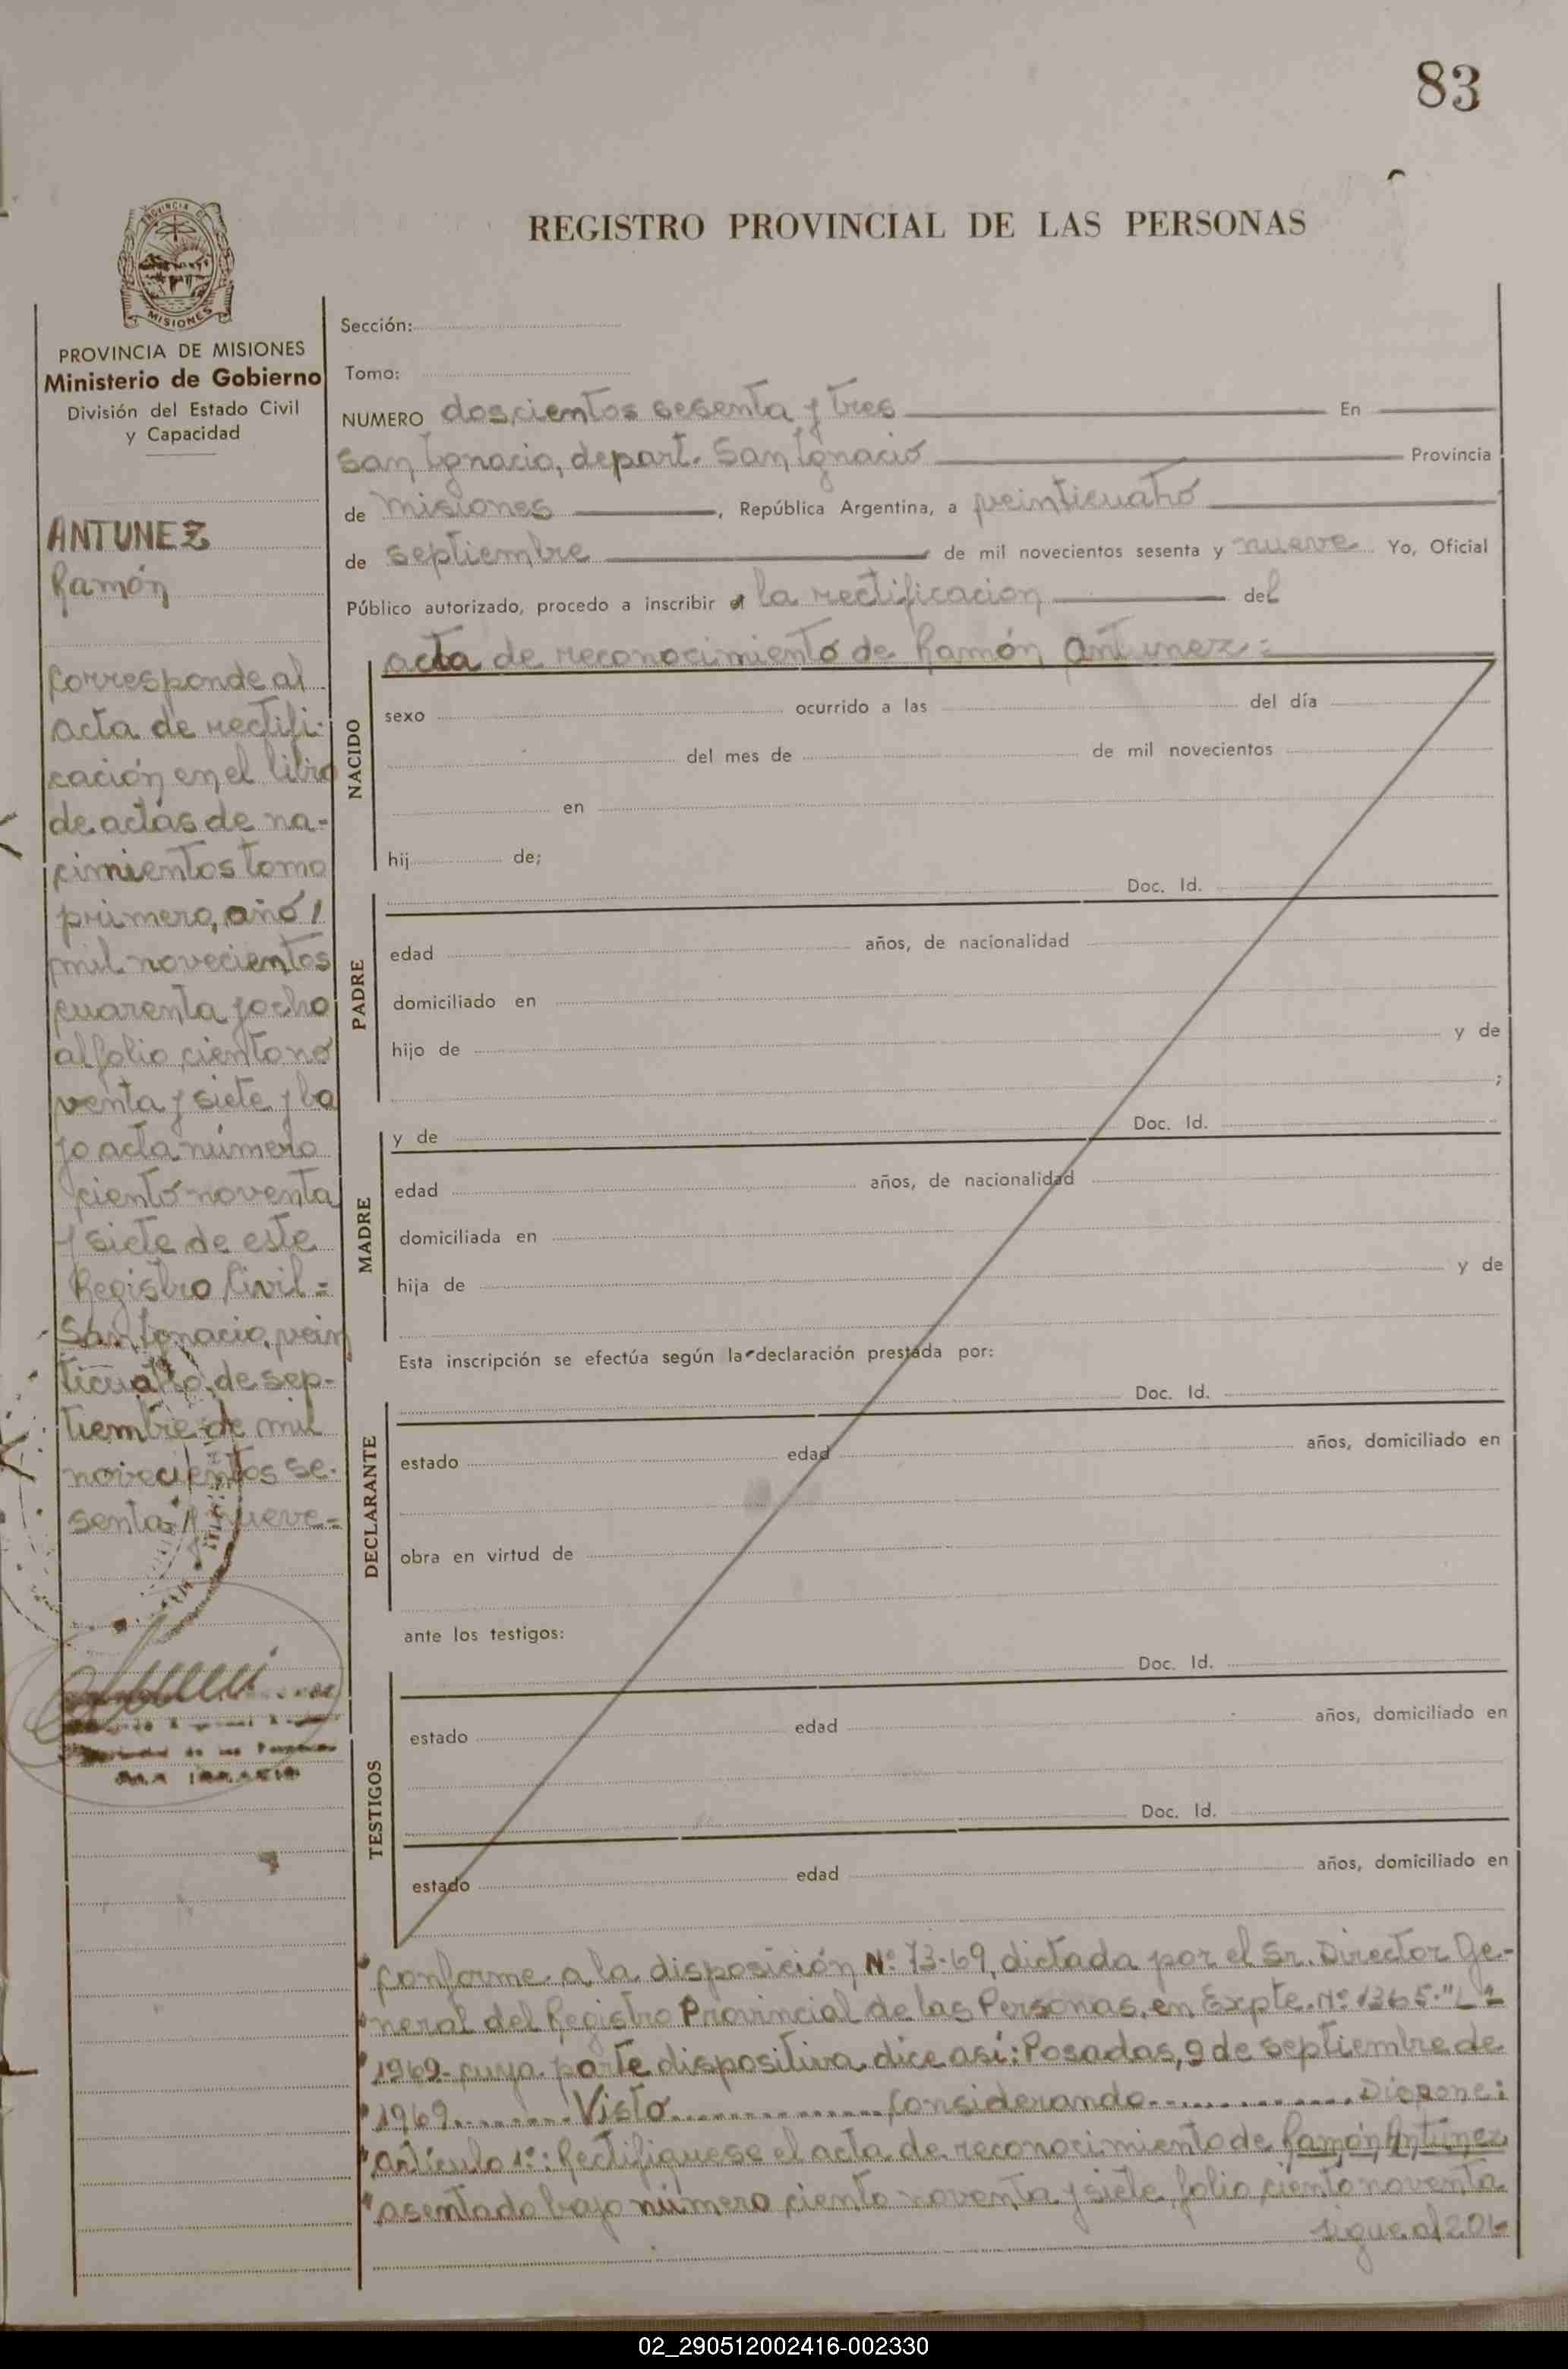 83
REGISTRO PROVINCIAL DE LAS PERSONAS
MISIONES
PROVINCIA DE MISIONES
Ministerio de Gobierno
División del Estado Civil
y Capacidad
ANTUNEZ
Ramón
Corresponde al
acta de rectifi-
cación en el libro
de actas de na-
cimientos tomo
primero, año
mil novecientos
cuarenta y ocho
al folio ciento no
venta y siete y ba
jo acta número
ciento noventa
y siete de este
Registro Civil =
San Ignacio, vein
ticuatro de sep-
tiembre de mil
novecientos se-
senta y nueve =
Sección:
Tomo:
NUMERO doscientos sesenta y tres En
San Ignacio, depart. San Ignacio Provincia
de Misiones, República Argentina, a veinticuatro
de septiembre de mil novecientos sesenta y nueve Yo, Oficial
Público autorizado, procedo a inscribir la rectificacion del
acta de reconocimiento de Ramón Antunez =
NACIDO
sexo ocurrido a las del día
del mes de de mil novecientos
en
hij de;
Doc. Id.
PADRE
edad años, de nacionalidad
domiciliado en
hijo de y de
;
y de Doc. Id.
MADRE
edad años, de nacionalidad
domiciliada en
hija de y de
Esta inscripción se efectúa según la declaración prestada por:
Doc. Id.
DECLARANTE
estado edad años, domiciliado en
obra en virtud de
ante los testigos:
Doc. Id.
TESTIGOS
estado edad años, domiciliado en
Doc. Id.
estado edad años, domiciliado en
"Conforme a la disposición Nº 73-69, dictada por el Sr. Director Ge-
"neral del Registro Provincial de las Personas, en Expte. Nº 1365-"L"-
"1969- cuya parte dispositiva dice así: Posadas, 9 de septiembre de
"1969........Visto...............Considerando..............Dispone:
"Artículo 1º: Rectifiquese el acta de reconocimiento de Ramón Antunez
"asentado bajo número ciento noventa y siete, folio ciento noventa
sigue al 201-
02_290512002416-002330